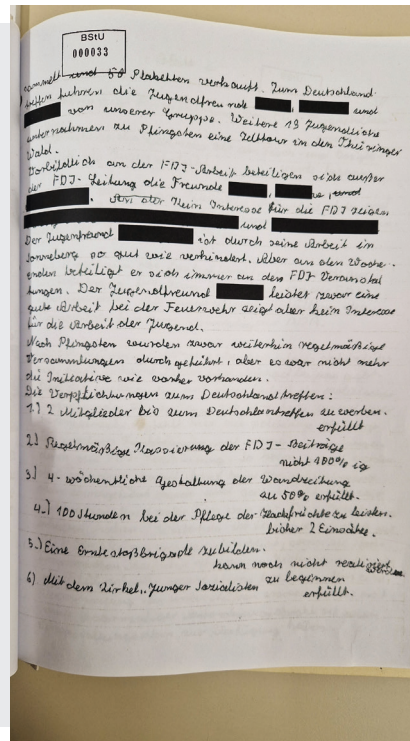 BStU
000033
sammelt und 50 Plaketten verkauft. Zum Deutschland-
treffen fuhren die Jugendfreunde und
von unserer Gruppe. Weitere 13 Jugendliche
unternahmen zu Pfingsten eine Zelttour in den Thüringer
Wald.
Vorbildlich an der FDJ-Arbeit beteiligen sich außer
der FDJ-Leitung die Freunde , und
. An aber kein Interesse für die FDJ zeigen
und
Der Jugendfreund ist durch seine Arbeit in
Sonneberg so gut wie verhindert. Aber an den Wochen-
enden beteiligt er sich immer an den FDJ Veranstal
tungen. Der Jugendfreund leistet zwar eine
gute Arbeit bei der Feuerwehr zeigt aber kein Interesse
für die Arbeit der Jugend.
Nach Pfingsten wurden zwar weiterhin regelmäßige
Versammlungen durchgeführt, aber es war nicht mehr
die Initiative wie vorher vorhanden.
Die Verpflichtungen zum Deutschlandtreffen:
1.) 2 Mitglieder bis zum Deutschlandtreffen zu werben.
erfüllt
2.) Regelmäßige Kassierung der FDJ-Beiträge
nicht 100% ig
3.) 4-wöchentliche Gestaltung der Wandzeitung
zu 50% erfüllt.
4.) 100 Stunden bei der Pflege der Hackfrüchte zu leisten.
bisher 2 Einsätze.
5.) Eine Erntestoßbrigade zu bilden.
kann noch nicht realisiert werden
6) Mit dem Zirkel „Junger Sozialisten zu beginnen
erfüllt.